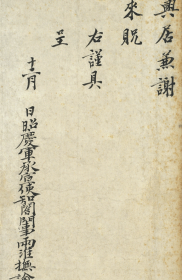 興居兼謝
來貺
右謹具
呈
十二月 日昭慶軍承宣使知閤門事兩淮撫諭